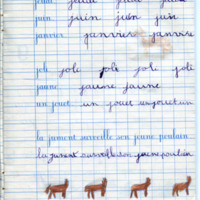 jeudi jeudi jeudi jeudi
juin juin juin juin
janvier janvier janvier
joli joli joli joli joli
jaune jaune jaune
un jouet un jouet un jouet un
la jument surveille son jeune poulain
la jument surveille son jeune poulain